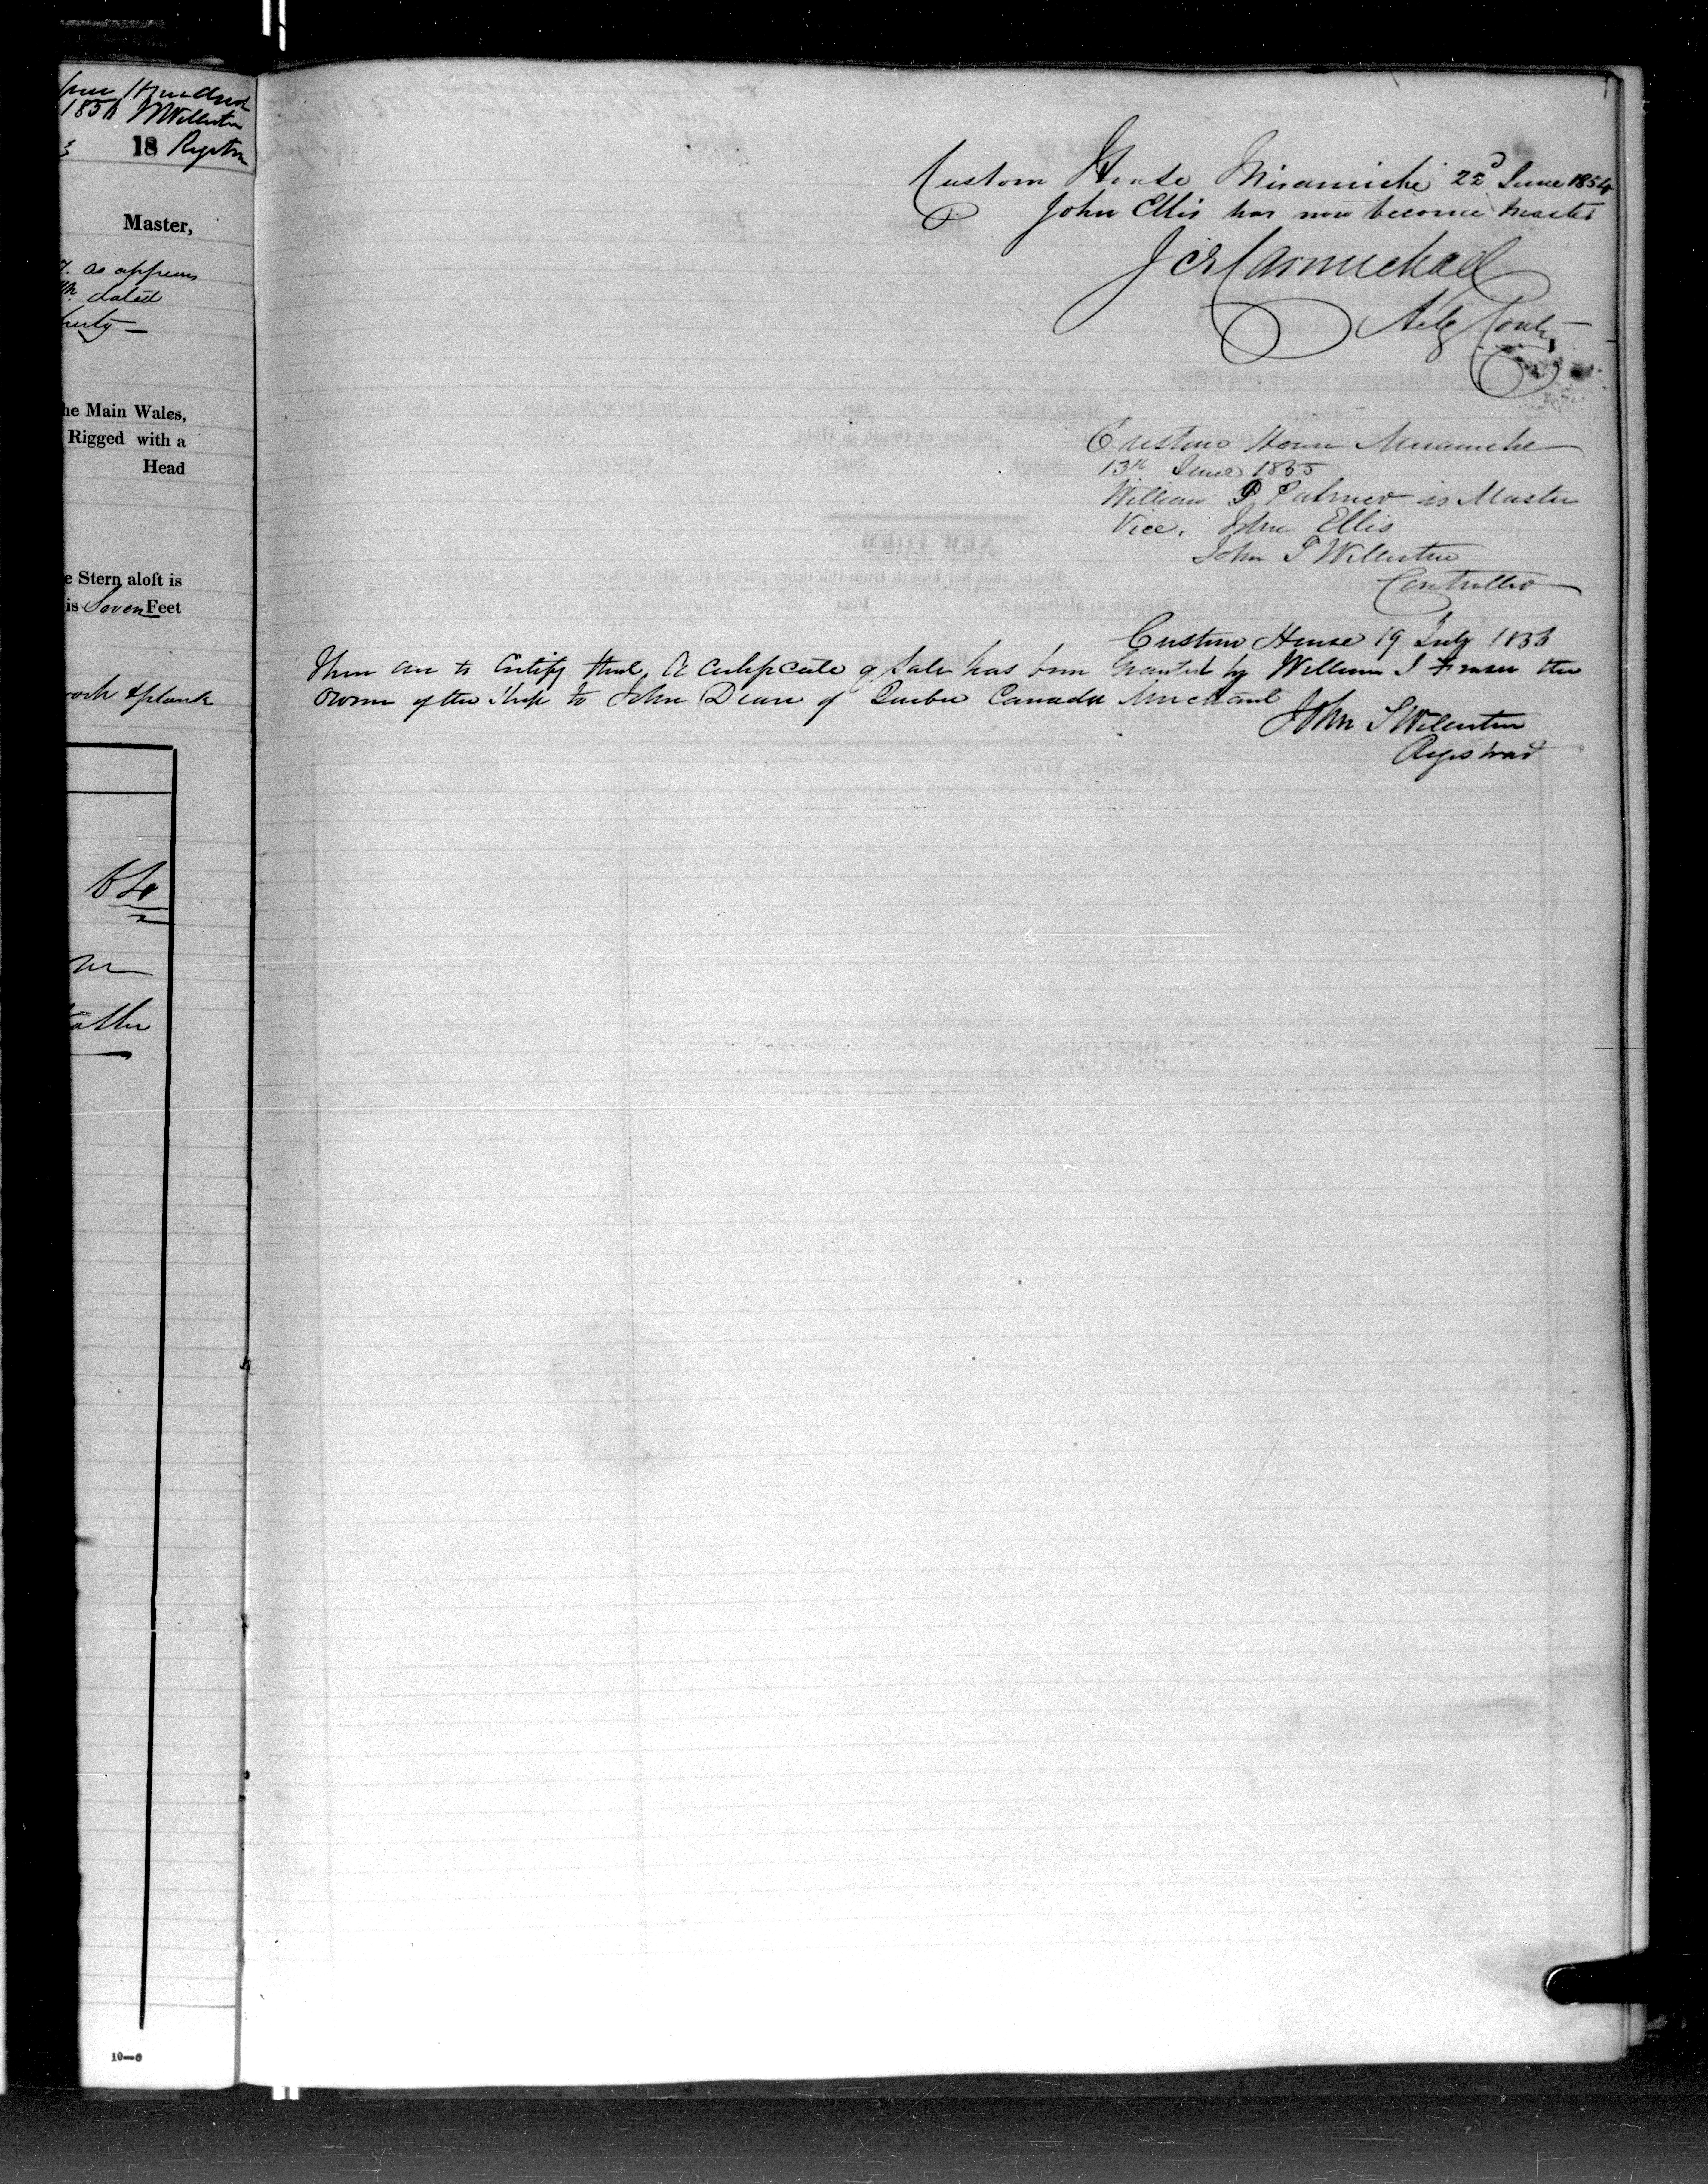 1856
18
Master,
as appears
dated
he Main Wales,
Rigged with a
Head
e Stern aloft is
is Seven Feet
& plank
10—6
Custom House Miramichi 22d June 1854
John Ellis has now become Master
J C Carmichael
Custom House Miramichi
13th June 1855
William P Palmer is Master
Vice, John Ellis
John T Williston
Controller
Custom House 19 July 1856
These are to Certify that A Certificate of Sale has been granted by William J Fraser the
Owner of the Ship to John Deare of Quebec Canada Merchant
John T Williston
Registrar